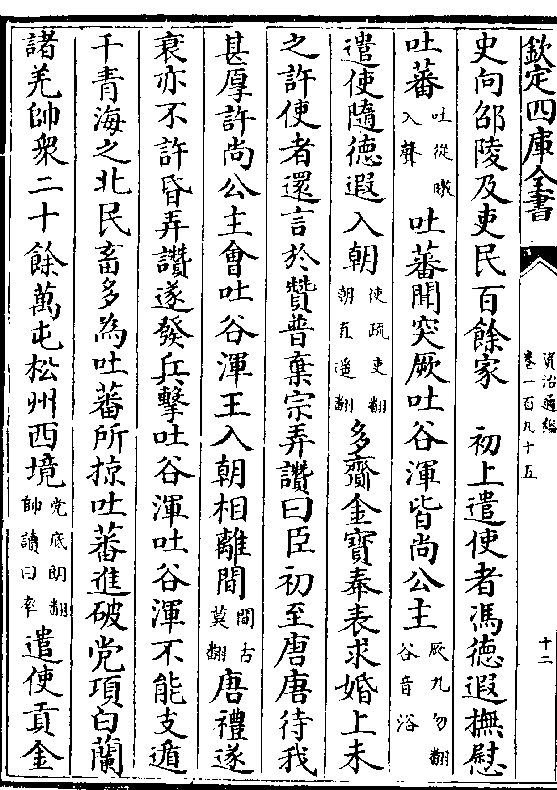 欽定四庫全書
資治通鑑
卷一百九十五
十二
史向邵陵及吏民百餘家　初上遣使者馮德遐撫慰
吐蕃吐從暾入聲吐蕃聞突厥吐谷渾皆尚公主厥九勿翻谷音浴
遣使隨德遐入朝使疏吏翻朝直遙翻多齎金寶奉表求婚上未
之許使者還言於贊普棄宗弄讚曰臣初至唐唐待我
甚厚許尚公主會吐谷渾王入朝相離間間古莧翻唐禮遂
衰亦不許昏弄讚遂發兵擊吐谷渾吐谷渾不能支遁
于青海之北民畜多為吐蕃所掠吐蕃進破党項白蘭
諸羌帥衆二十餘萬屯松州西境党底朗翻帥讀曰率遣使貢金